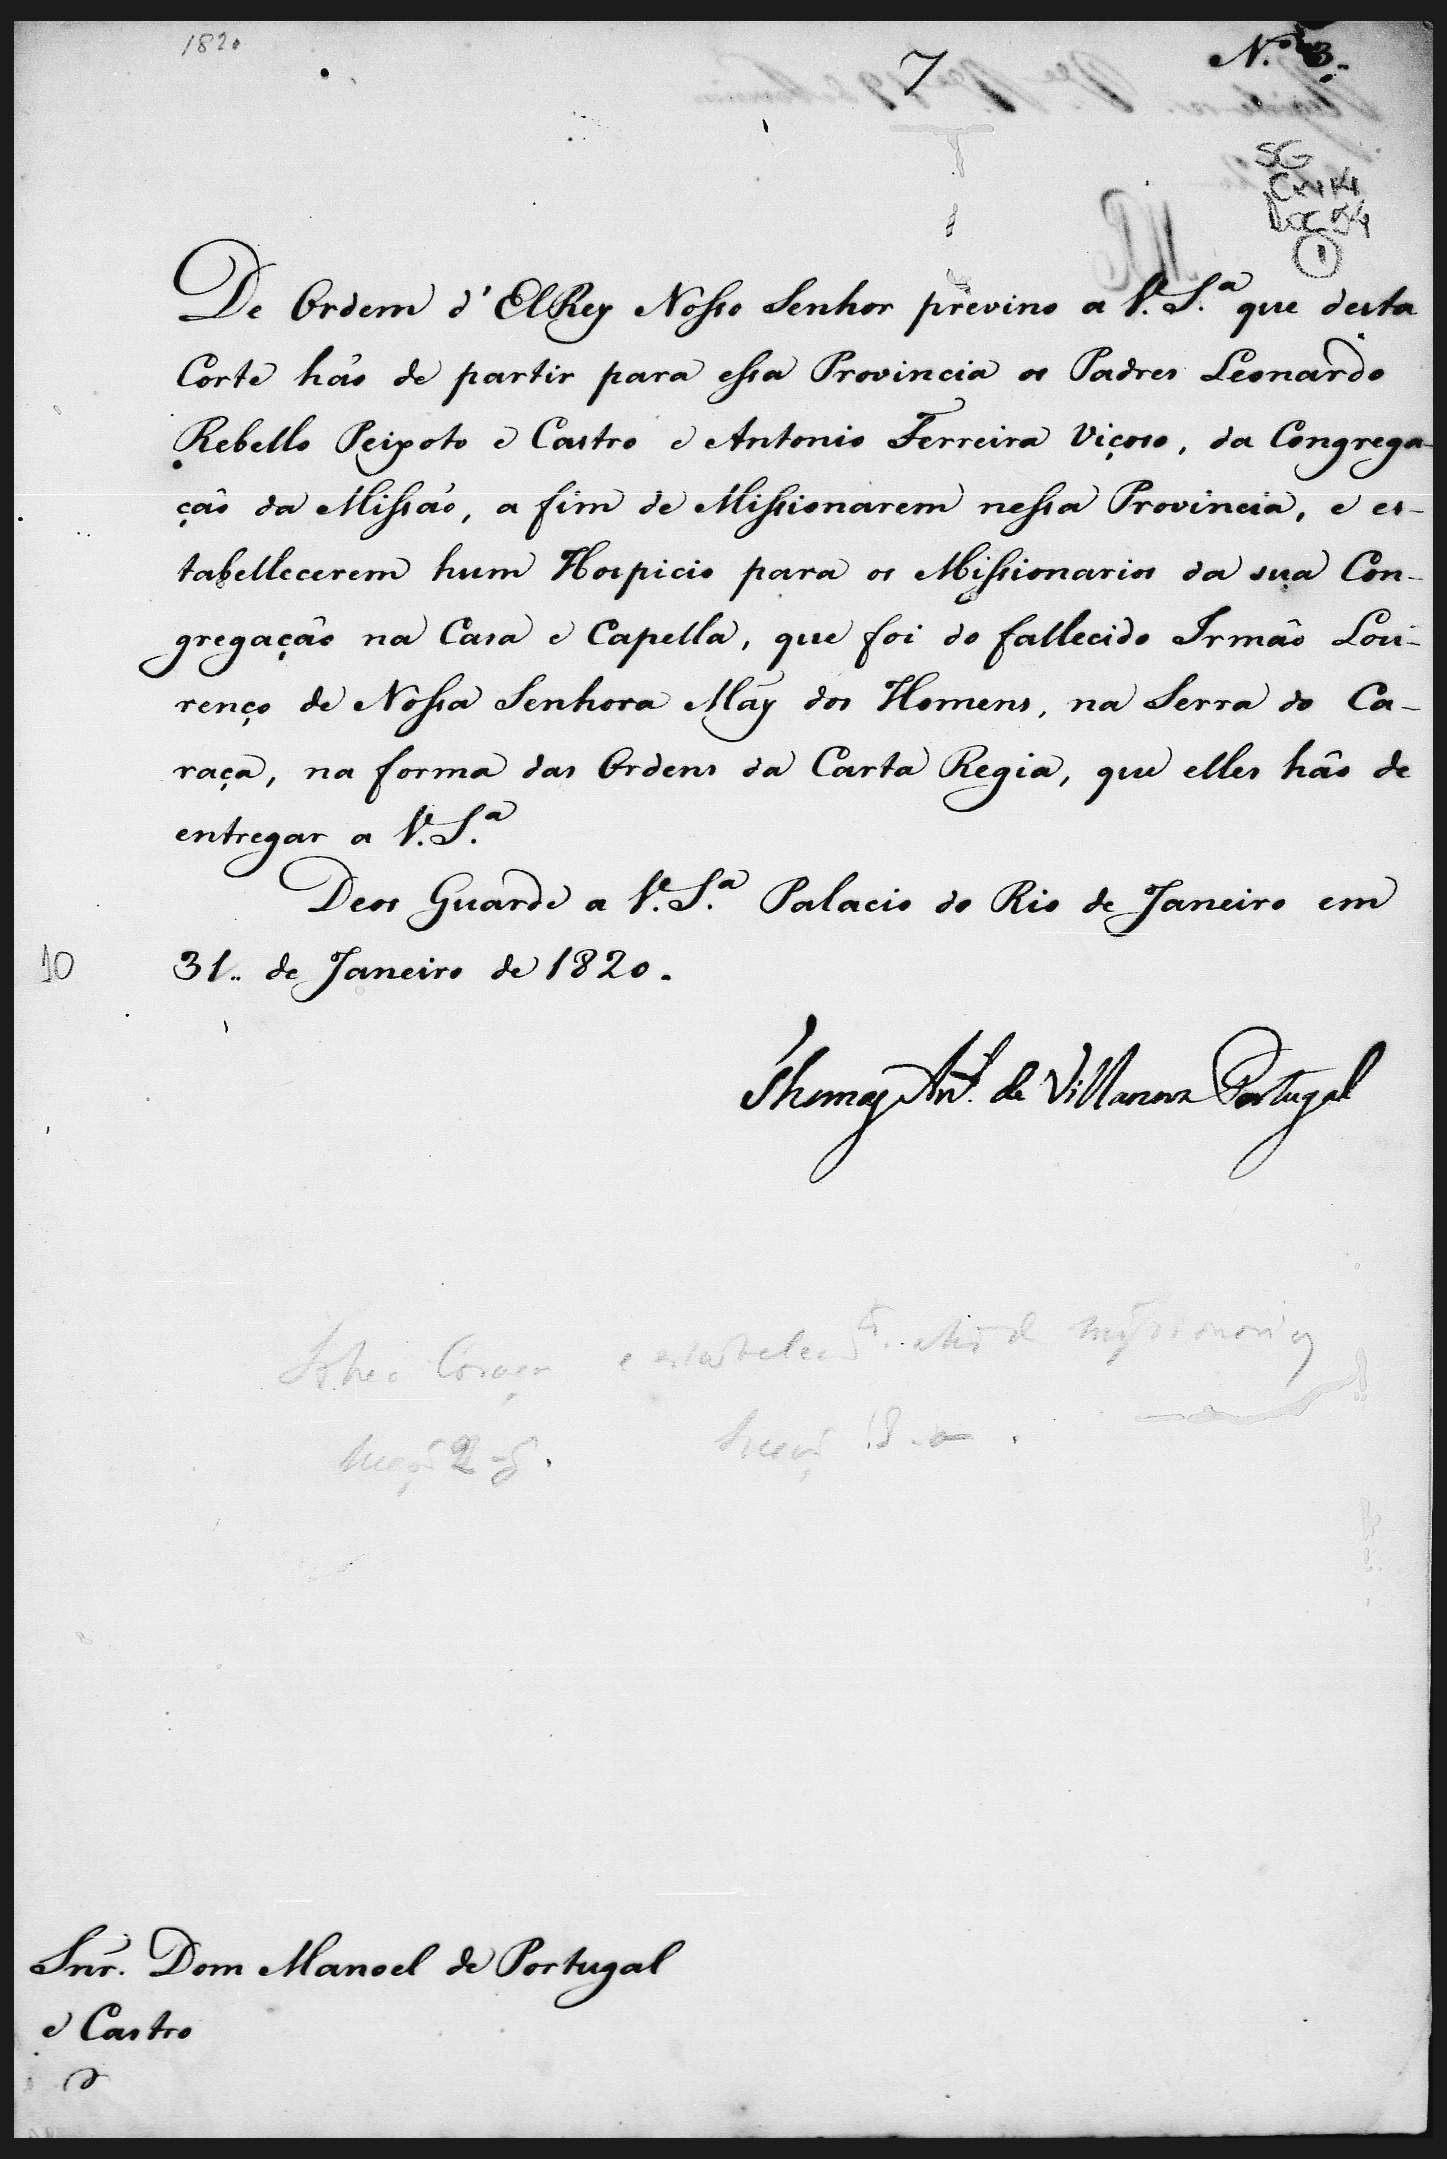 1820
7
N.º 3.
SG
Cx 14
Doc 54
1
De Ordem d'ElRey Nosso Senhor previno a V. S.ª que desta
Corte hão de partir para essa Provincia os Padres Leonardo
Rebello Peixoto e Castro e Antonio Ferreira Viçoso, da Congrega-
ção da Missão, a fim de Missionarem nessa Provincia, e es-
tabellecerem hum Hospicio para os Missionarios da sua Con-
gregação na Casa e Capella, que foi do fallecido Irmão Lou-
renço de Nossa Senhora Máy dos Homens, na Serra do Ca-
raça, na forma das Ordens da Carta Regia, que elles hão de
entregar a V. S.ª
Deos Guarde a V. S.ª Palacio do Rio de Janeiro em
10
31.. de Janeiro de 1820.
Thomaz Ant.º de Villanova Portugal
Snr. Dom Manoel de Portugal
e Castro